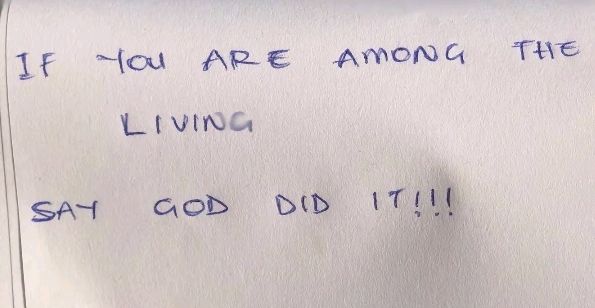 IF YOU ARE AMONG THE
LIVING
SAY GOD DID IT!!!